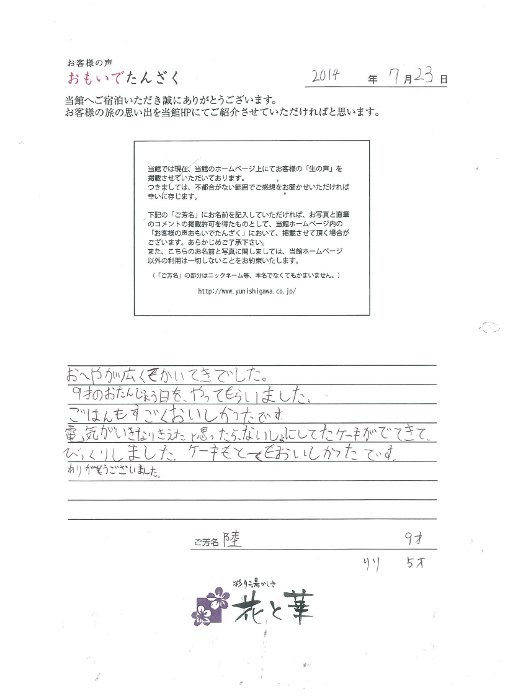 お客様の声
おもいでたんざく
2014 年 7月23日
当館へご宿泊いただき誠にありがとうございます。
お客様の旅の思い出を当館HPにてご紹介させていただければと思います。
当館では現在、当館のホームページ上にてお客様の「生の声」を
掲載させていただいております。
つきましては、不都合がない範囲でご感想をお聞かせいただければ
幸いに存じます。
下記の「ご芳名」にお名前を記入していただければ、お写真と直筆
のコメントの掲載許可を得たものとして、当館ホームページ内の
「お客様の声おもいでたんざく」において、掲載させて頂く場合が
ございます。あらかじめご了承下さい。
また、こちらのお名前と写真に関しましては、当館ホームページ
以外の利用は一切しないことをお約束いたします。
(「ご芳名」の部分はニックネーム等、本名でなくてもかまいません。)
http://www.yunishigawa.co.jp/
おへやが広くてかいてきでした。
9才のおたんじょう日を、やってもらいました、
ごはんもすごくおいしかったです
電気がいきなりきえたと思ったら、ないしょにしてたケーキがでてきて、
びっくりしました、ケーキもとってもおいしかったです。
ありがとうございました。
ご芳名 陸 9才
リリ 5才
彩り湯かしき
花と華